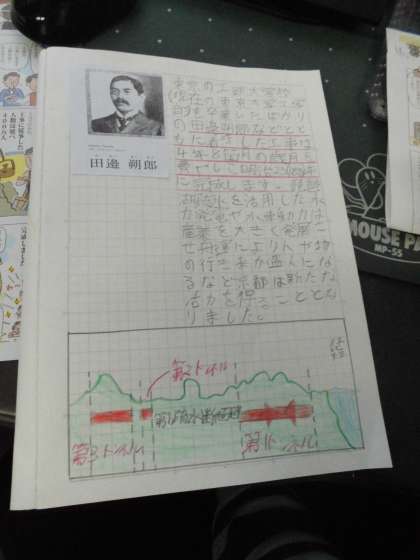 東京の工部大学校
(現在の東京大学工学
部)を卒業したばかり
の田邉朔郎などとと
もに着工した工事は
4年と8カ月の歳月を
費やして明治23年
に完成します。琵琶
湖疏水を活用した水
力発電や水車動力は
産業を大きく発展さ
せ舟運により人や物
の行き来が盛んにな
るなど京都は新たな
活力を得ることとな
りました。
田邉 朔郎
第2トンネル
第3トンネル
第1トンネル
MOUSE PA
MP-55
工事に従事した
人数は延べ
400万人
完成しました